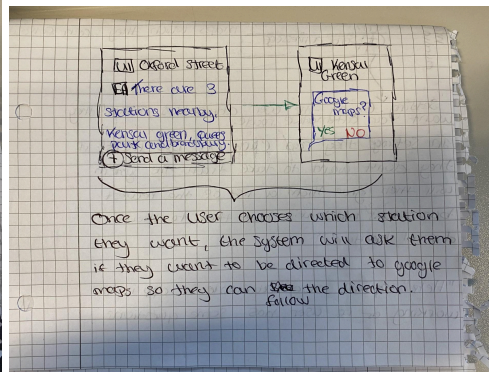 U Oxford street
There are 3
stations nearby.
Kensal green, queens
park and
+ Send a message
U Kensal
Green
Google
maps?
Yes NO
Once the user chooses which station
they want, the system will ask them
if they want to be directed to google
maps so they can the direction.
follow